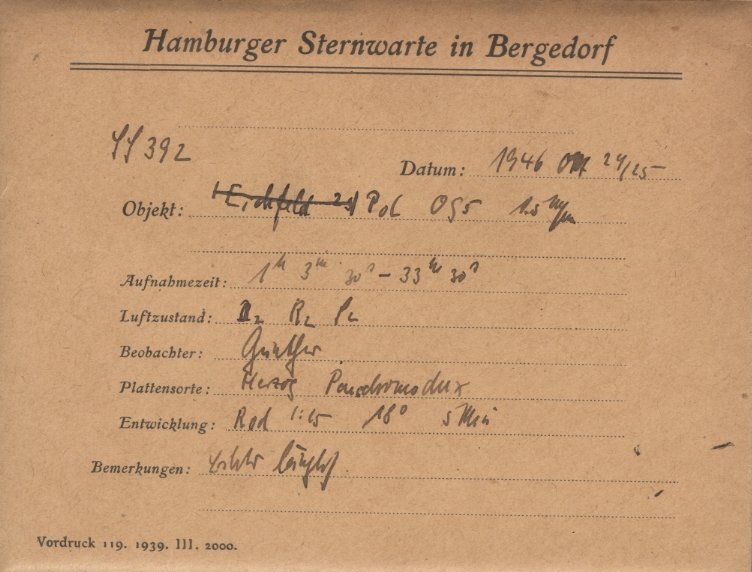 Hamburger Sternwarte in Bergedorf
SS 392
Datum: 1946 Okt 24/25
Objekt: Eichfeld Pol OG5
Aufnahmezeit: 1h 3m 30s – 33m 30s
Luftzustand: D2 R2 P2
Beobachter: Günther
Plattensorte: Herzog Panchromodux
Entwicklung: Rod 1:25 18° 5 Min
Bemerkungen:
Vordruck 119. 1939. III. 2000.